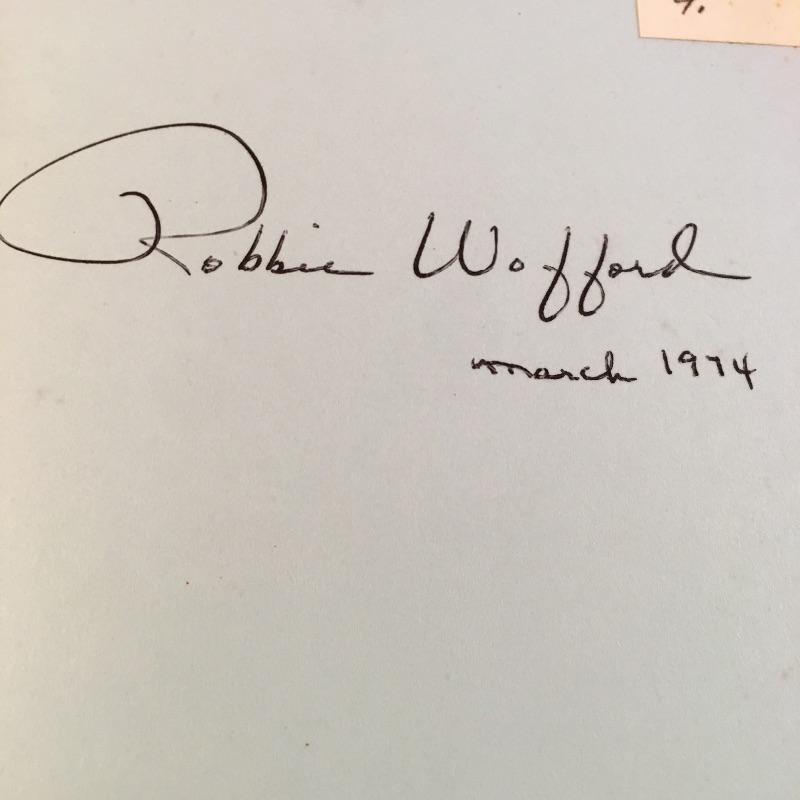 Robbie Wofford
march 1974